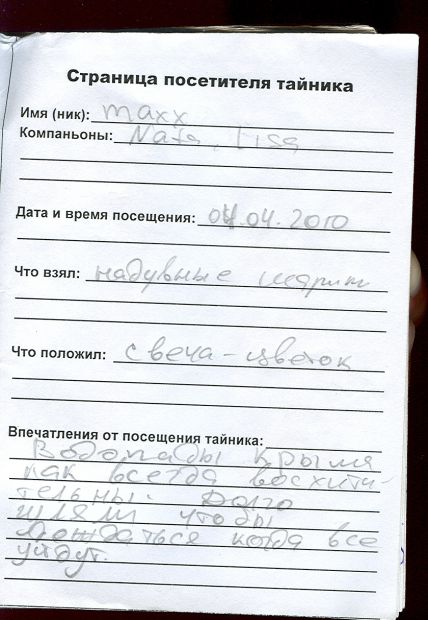 Страница посетителя тайника
Имя (ник): maxx
Компаньоны: Nata, Lisa
Дата и время посещения: 04.04.2010
Что взял: надувные шарики
Что положил: свеча-цветок
Впечатления от посещения тайника:
Водопады Крыма
как всегда восхити-
тельны. Долго
чтобы
дождаться когда все
уйдут.